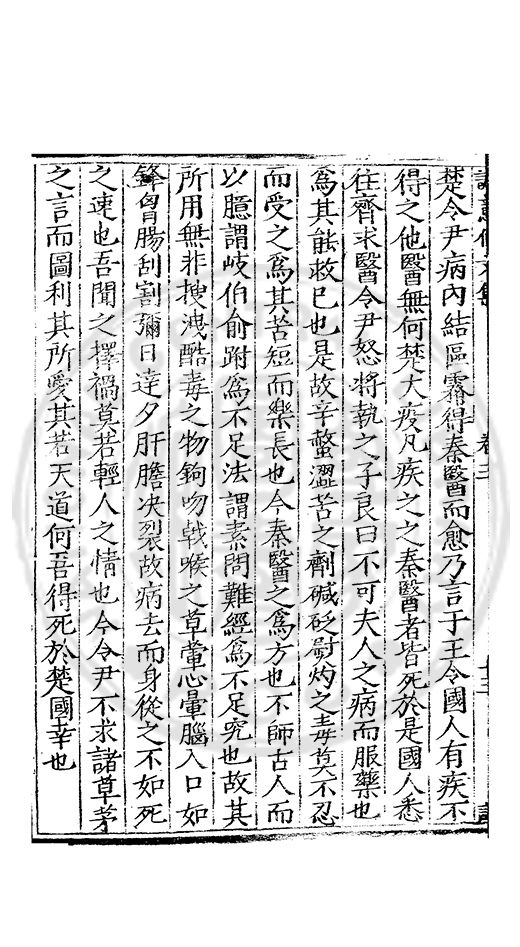 楚令尹病内結區霿得秦醫而愈乃言于王令國人有疾不
得之他醫無何楚大疫凡疾之之秦醫者皆死於是國人悉
往齊求醫令尹怒將執之子良曰不可夫人之病而服藥也
爲其能救已也是故辛螫澀苦之劑碱砭熨灼之毒莫不忍
而受之爲其苦短而樂長也今秦醫之爲方也不師古人而
以臆謂岐伯俞跗爲不足法謂素問難經爲不足究也故其
所用無非搜洩酷毒之物鉤吻戟喉之草葷心暈腦入口如
鋒胷腸刮割彌日達夕肝膽决裂故病去而身從之不如死
之速也吾聞之擇禍莫若輕人之情也今令尹不求諸草茅
之言而圖利其所愛其若天道何吾得死於楚國幸也